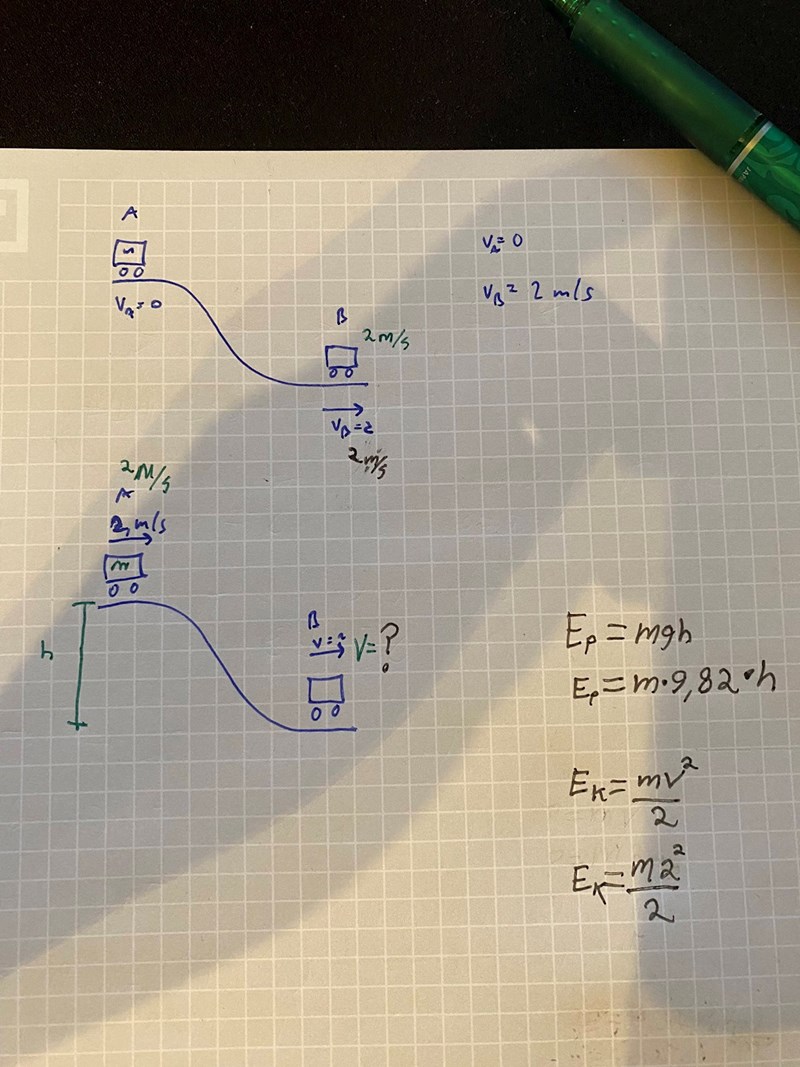 A
m
V_A=0
V_A=0
V_B= 2 m/s
B
2m/s
V_B=2
2m/s
2M/s
A
2 m/s
m
h
B
V=?
E_p=mgh
E_p=m·9,82·h
E_K=mv²/2
E_K=m2²/2